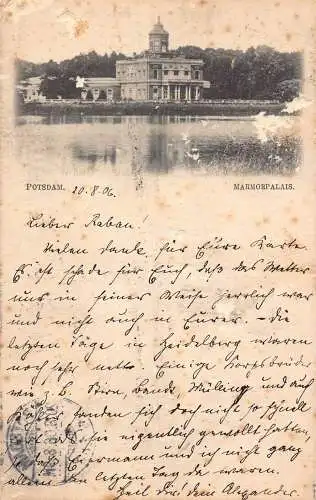 POTSDAM. 20.8.06. MARMORPALAIS.
Lieber Raban!
Vielen Dank für Eure Karte.
Es ist schade für Euch, daß das Wetter
nur in seiner Weise herrlich war
und nicht auch in Eurer. - Die
letzten Tage in Heidelberg waren
noch sehr nett. Einige Korpsbrüder
wie z. B. Stirn, und auch
fanden sich doch nicht so
als sie eigentlich gewollt hatten,
und ich nicht ganz
allein den letzten Tag da waren.
Heil Dir! dein Alexander.